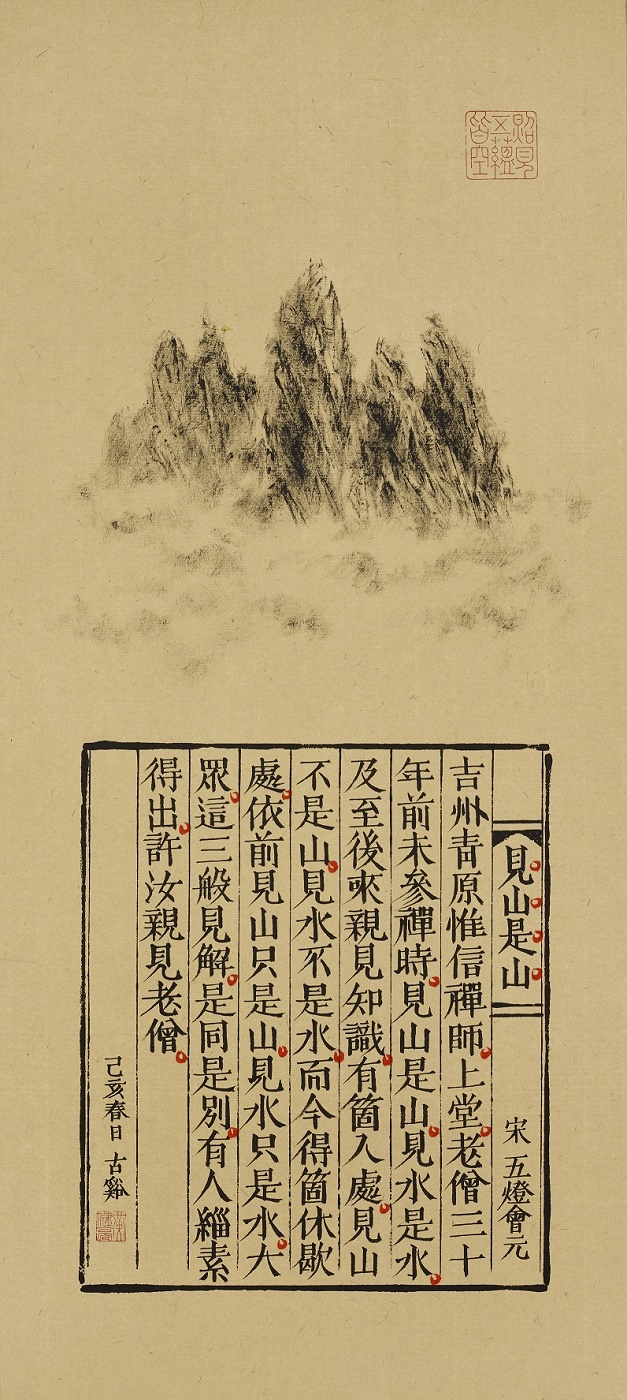 照見
五蘊
皆空
見山是山
宋 五燈會元
吉州青原惟信禪師上堂老僧三十
年前未參禪時見山是山見水是水
及至後來親見知識有箇入處見山
不是山見水不是水而今得箇休歇
處依前見山只是山見水只是水大
眾這三般見解是同是別有人緇素
得出許汝親見老僧
己亥春日 古谿